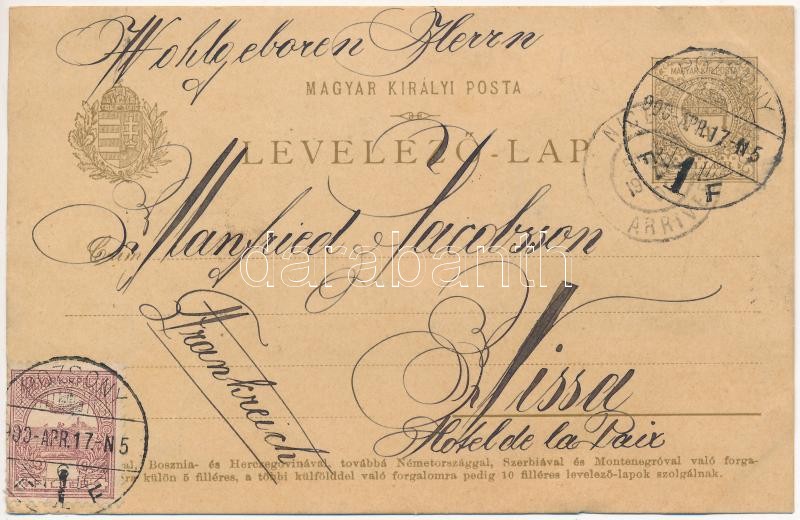 Wohlgeboren Herrn
MAGYAR KIRÁLYI POSTA
MAGYAR KIR. POSTA
POZSONY
900-APR.17-N5
1 F
NICE
ARRIVÉE
LEVELEZŐ-LAP
Manfried Jacobsson
darabanth
Frankreich
Nissa
Hotel de la Paix
MAGYAR KIR. POSTA
POZSONY
900-APR.17-N5
1 F
Bosznia- és Herczegovinával, továbbá Németországgal, Szerbiával és Montenegróval való forga-
külön 5 filléres, a többi külfölddel való forgalomra pedig 10 filléres levelező-lapok szolgálnak.